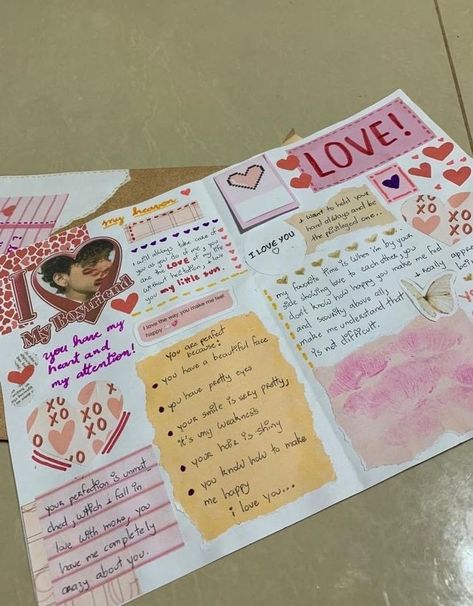 I
My Boyfriend
you have my
heart and
my attention!
XO
XO
XO
XO
your perfection is unmat
ched, which I fall in
love with more, you
have me completely
crazy about you.
my heaven
I will always take care of
you as you do of me,
are the LOVE of my life
without hesitation, I love
you my little sun.
I love the way you make me feel
happy
you are perfect
because:
you have a beautiful face
you have pretty eyes
your smile is very pretty,
it's my weakness
your hair is shiny
you know how to make
me happy
i love you...
LOVE!
I LOVE YOU
I want to hold your
hand always and be
the privileged one..
XO
XO
my favorite time is when i'm by your
side showing love to each other, you
don't know how happy you make me feel
and security above all,
make me understand that
is not difficult.
I really